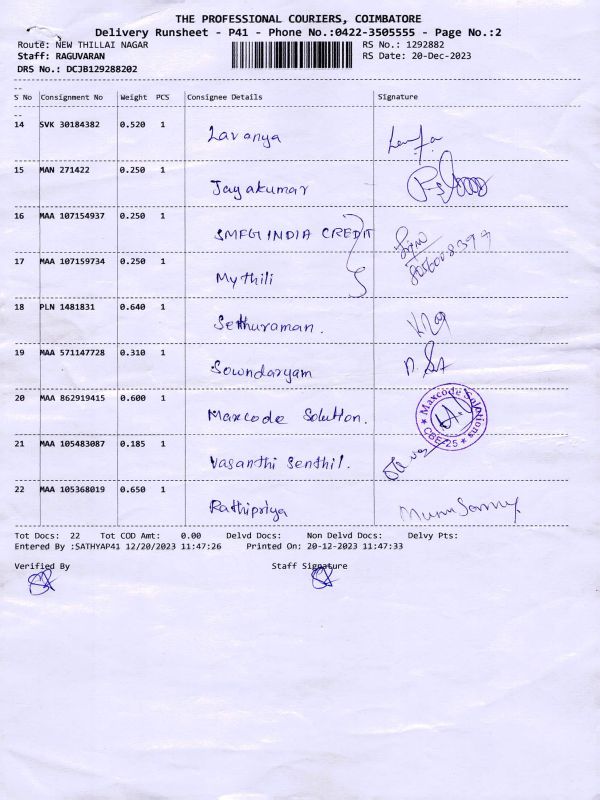 THE PROFESSIONAL COURIERS, COIMBATORE
Delivery Runsheet - P41 - Phone No.:0422-3505555 - Page No.:2
Route: NEW THILLAI NAGAR RS No.: 1292882
Staff: RAGUVARAN RS Date: 20-Dec-2023
DRS No.: DCJB129288202
S No Consignment No Weight PCS Consignee Details Signature
14 SVK 30184382 0.520 1 Lavanya
15 MAN 271422 0.250 1 Jayakumar
16 MAA 107154937 0.250 1 SMFG INDIA CREDIT
17 MAA 107159734 0.250 1 Mythili
18 PLN 1481831 0.640 1 Sethuraman.
19 MAA 571147728 0.310 1 Sowndaryam
20 MAA 862919415 0.600 1 Maxcode Solution.
Maxcode Solutions
CBE-25
21 MAA 105483087 0.185 1 Vasanthi Senthil.
22 MAA 105368019 0.650 1 Rathipriya
Tot Docs: 22 Tot COD Amt: 0.00 Delvd Docs: Non Delvd Docs: Delvy Pts:
Entered By :SATHYAP41 12/20/2023 11:47:26 Printed On: 20-12-2023 11:47:33
Verified By Staff Signature